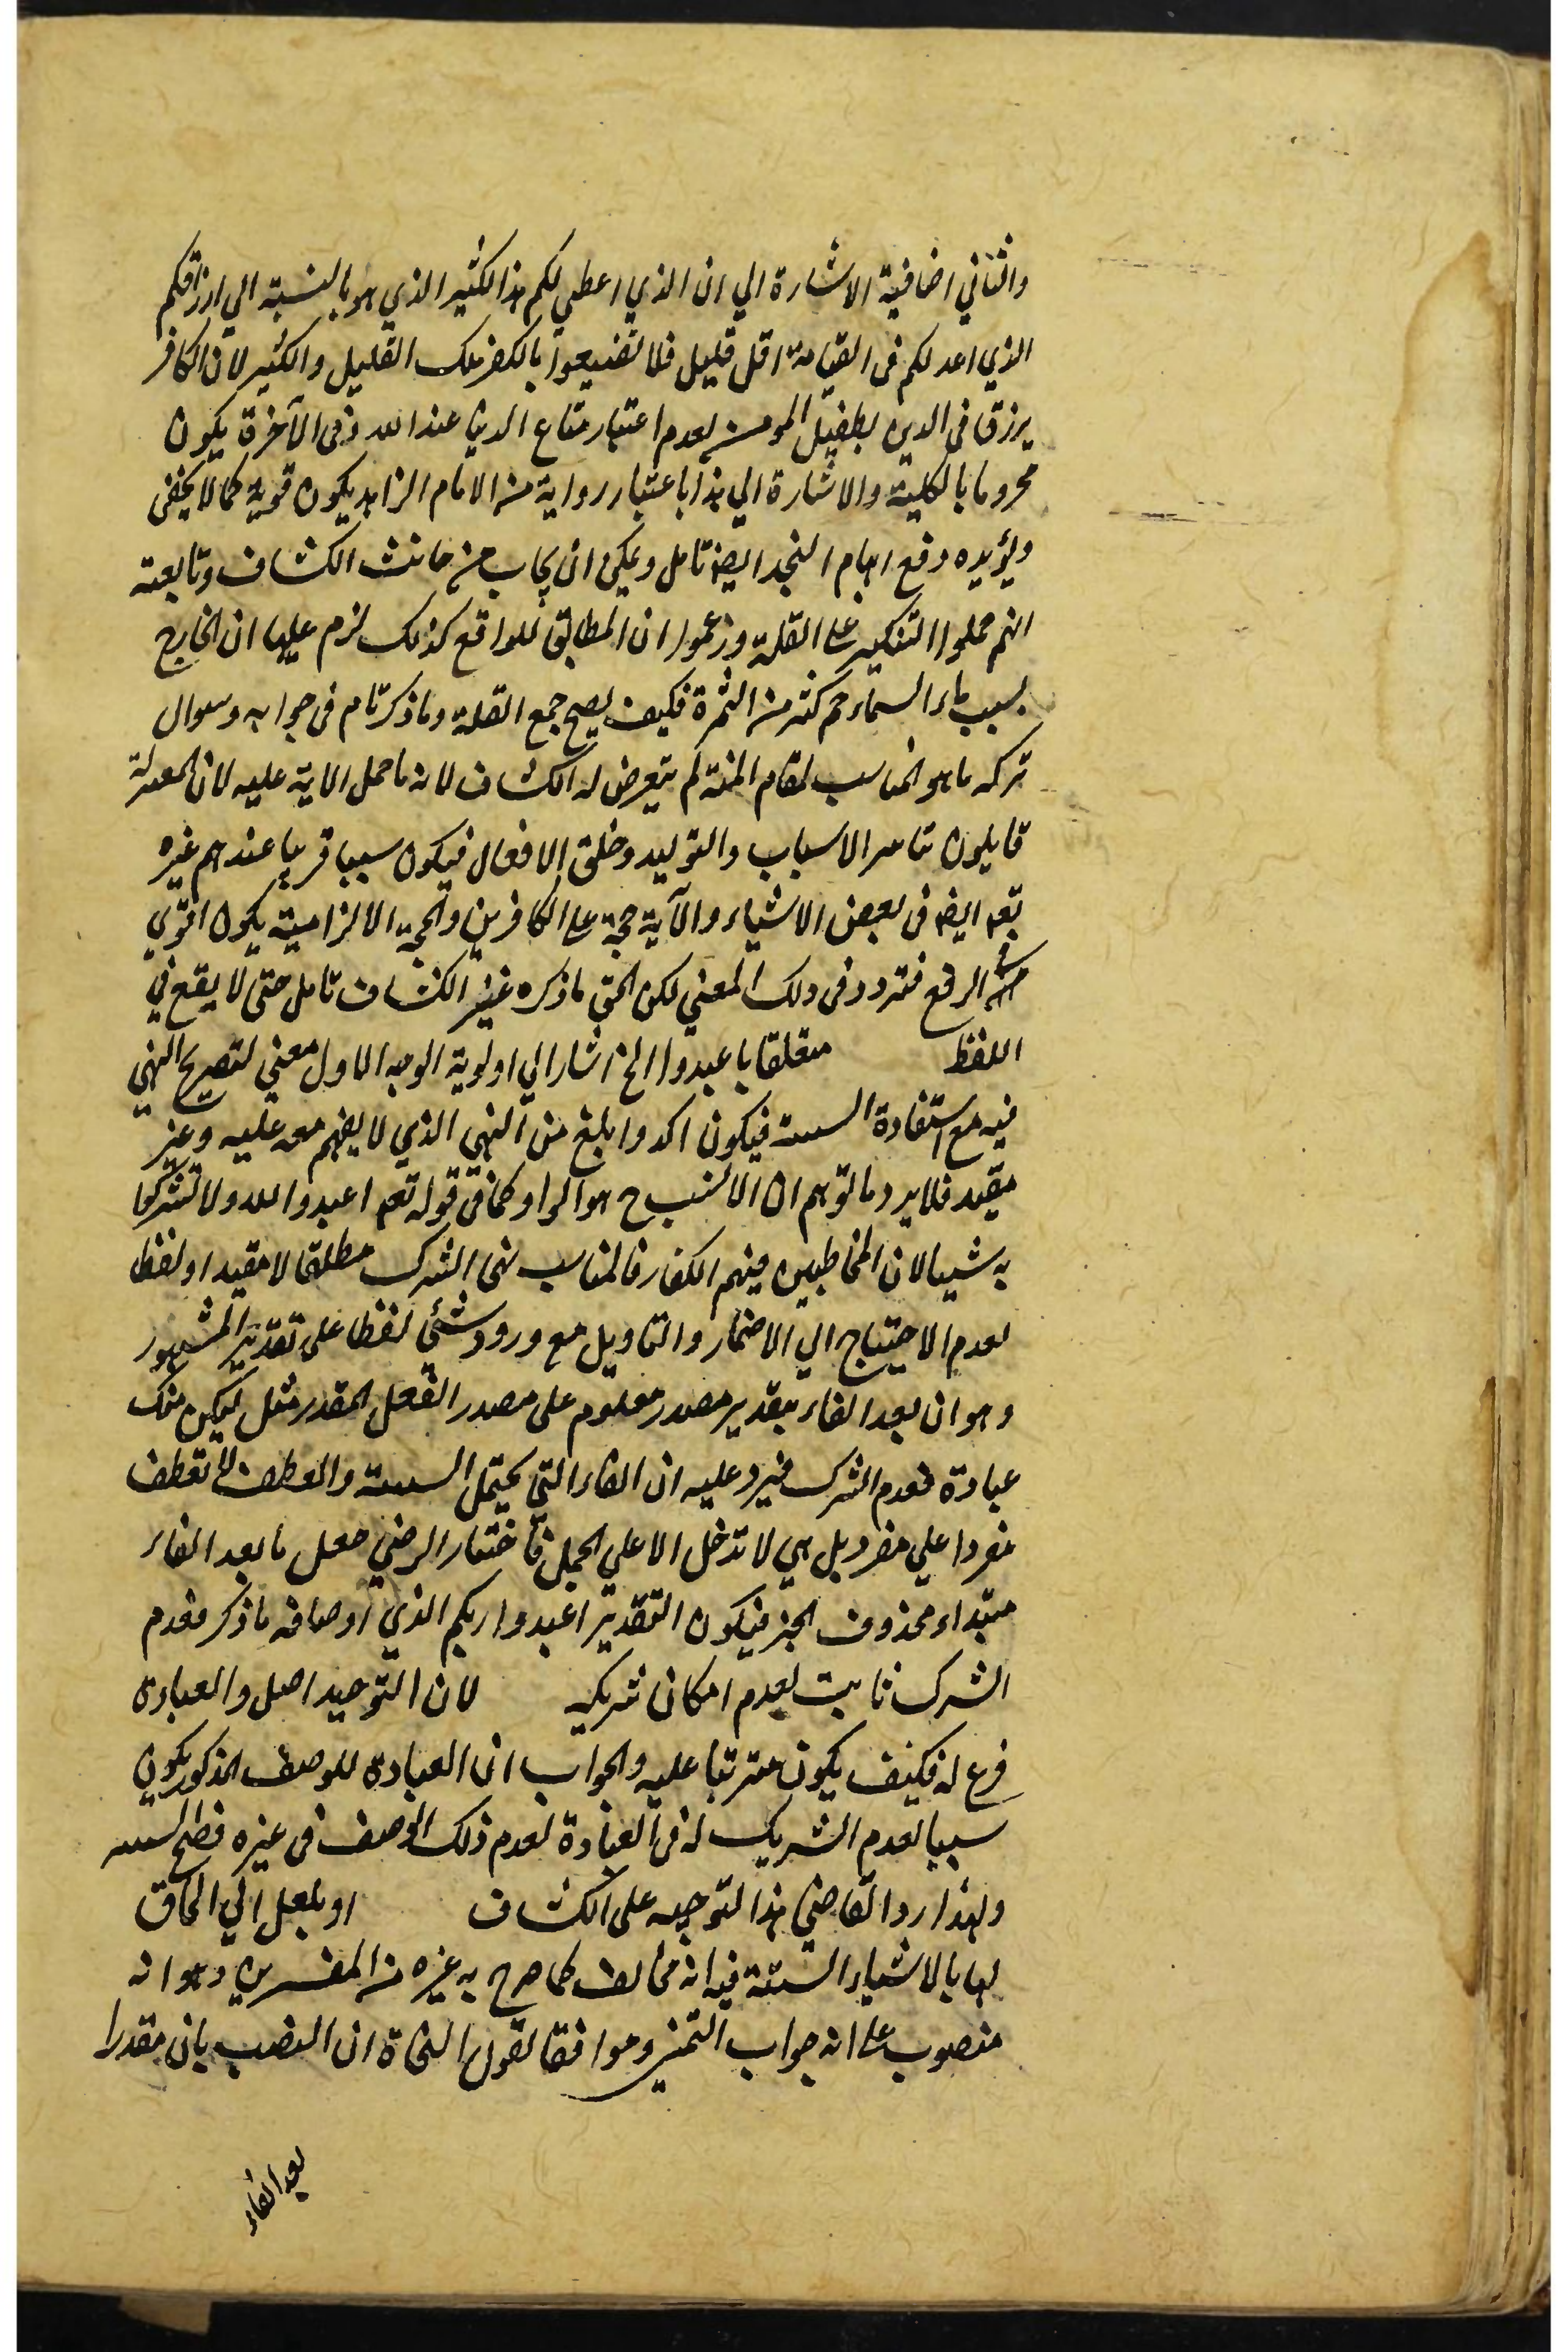 والثاني اضافية الاشارة الي ان الذي اعطي لكم هذا الكثير الذي هو بالنسبة الي ارزاقكم
الذي اعد لكم فى القيامة اقل قليل فلا تضيعوا بالكفر تلك القليل والكثير لان الكافر
يرزق فى الدين بطفيل المومن لعدم اعتبار متاع الدنيا عند الله وفى الآخرة يكون
محروما بالكلية والاشارة الي هذا باعتبار رواية من الامام الزاهد يكون قوية كما لا يخفى
ويؤيده دفع ايهام التنجد ايضا تامل ويمكن ان يجاب من جانب الكشاف وتابعيه
انهم حملوا التنكير على القلة وزعموا ان المطابق للواقع كذلك لزم عليها ان الخارج
بسبب ماء السماء جم كثير من الثمرة فكيف يصح جمع القلة وما ذكر تام فى جوابه وسوال
تركه ما هو المناسب لمقام المنة لم يتعرض له الكشاف لانه ما حمل الاية عليه لان المعتزلة
قايلون بتاثير الاسباب والتوليد وخلق الافعال فيكون سببا قريبا عندهم غيره
تعه ايضا فى بعض الاشياء والآية حجة على الكافرين والحجة الالزامية يكون اقوي
الرفع فتردد فى ذلك المعني لكن الحق ما ذكره غير الكشاف تامل حتى لا يقع في
اللفظ متعلقا باعبدوا الخ اشار الي اولوية الوجه الاول معني لتصريح النهي
فيه مع استفادة السببية فيكون اكد وابلغ من النهي الذي لا يفهم معه عليه وغير
مقيد فلا يرد ما توهم ان الانسب ح هو الواو كما فى قوله تعه اعبدوا الله ولا تشركوا
به شيا لان المخاطبين منهم الكفار فالمناسب نهى الشرك مطلقا لا مقيدا ولفظا
لعدم الاحتياج الي الاضمار والتاويل مع ورود شئ لفظا على تقدير المشهور
وهو ان بعد الفاء بتقدير مصدر معلوم على مصدر الفعل المقدر مثل ليكن منك
عبادة فعدم الشرك فيرد عليه ان الفاء التي يحتمل السببية والعطف لا تعطف
مفردا علي مفرد بل هي لا تدخل الا علي الجمل فاختار الرضي جعل ما بعد الفاء
مبتداء محذوف الخبر فيكون التقدير اعبدوا ربكم الذي اوصافه ما ذكر فعدم
الشرك ثابت لعدم امكان شريك لان التوحيد اصل والعبادة
فرع له فكيف يكون مترتبا عليه والجواب ان العبادة للوصف المذكور يكون
سببا لعدم الشريك له فى العبادة لعدم ذلك الوصف فى غيره فصح السببية
ولهذا رد القاضي هذا التوجيه على الكشاف او بلعل الي الحاق
لها بالاشياء الستة فيه انه مخالف لما صرح به غيره من المفسرين وهو انه
منصوب على انه جواب التمني وموافقا لقول النحاة ان النصب بان مقدرا
بعد الفاء